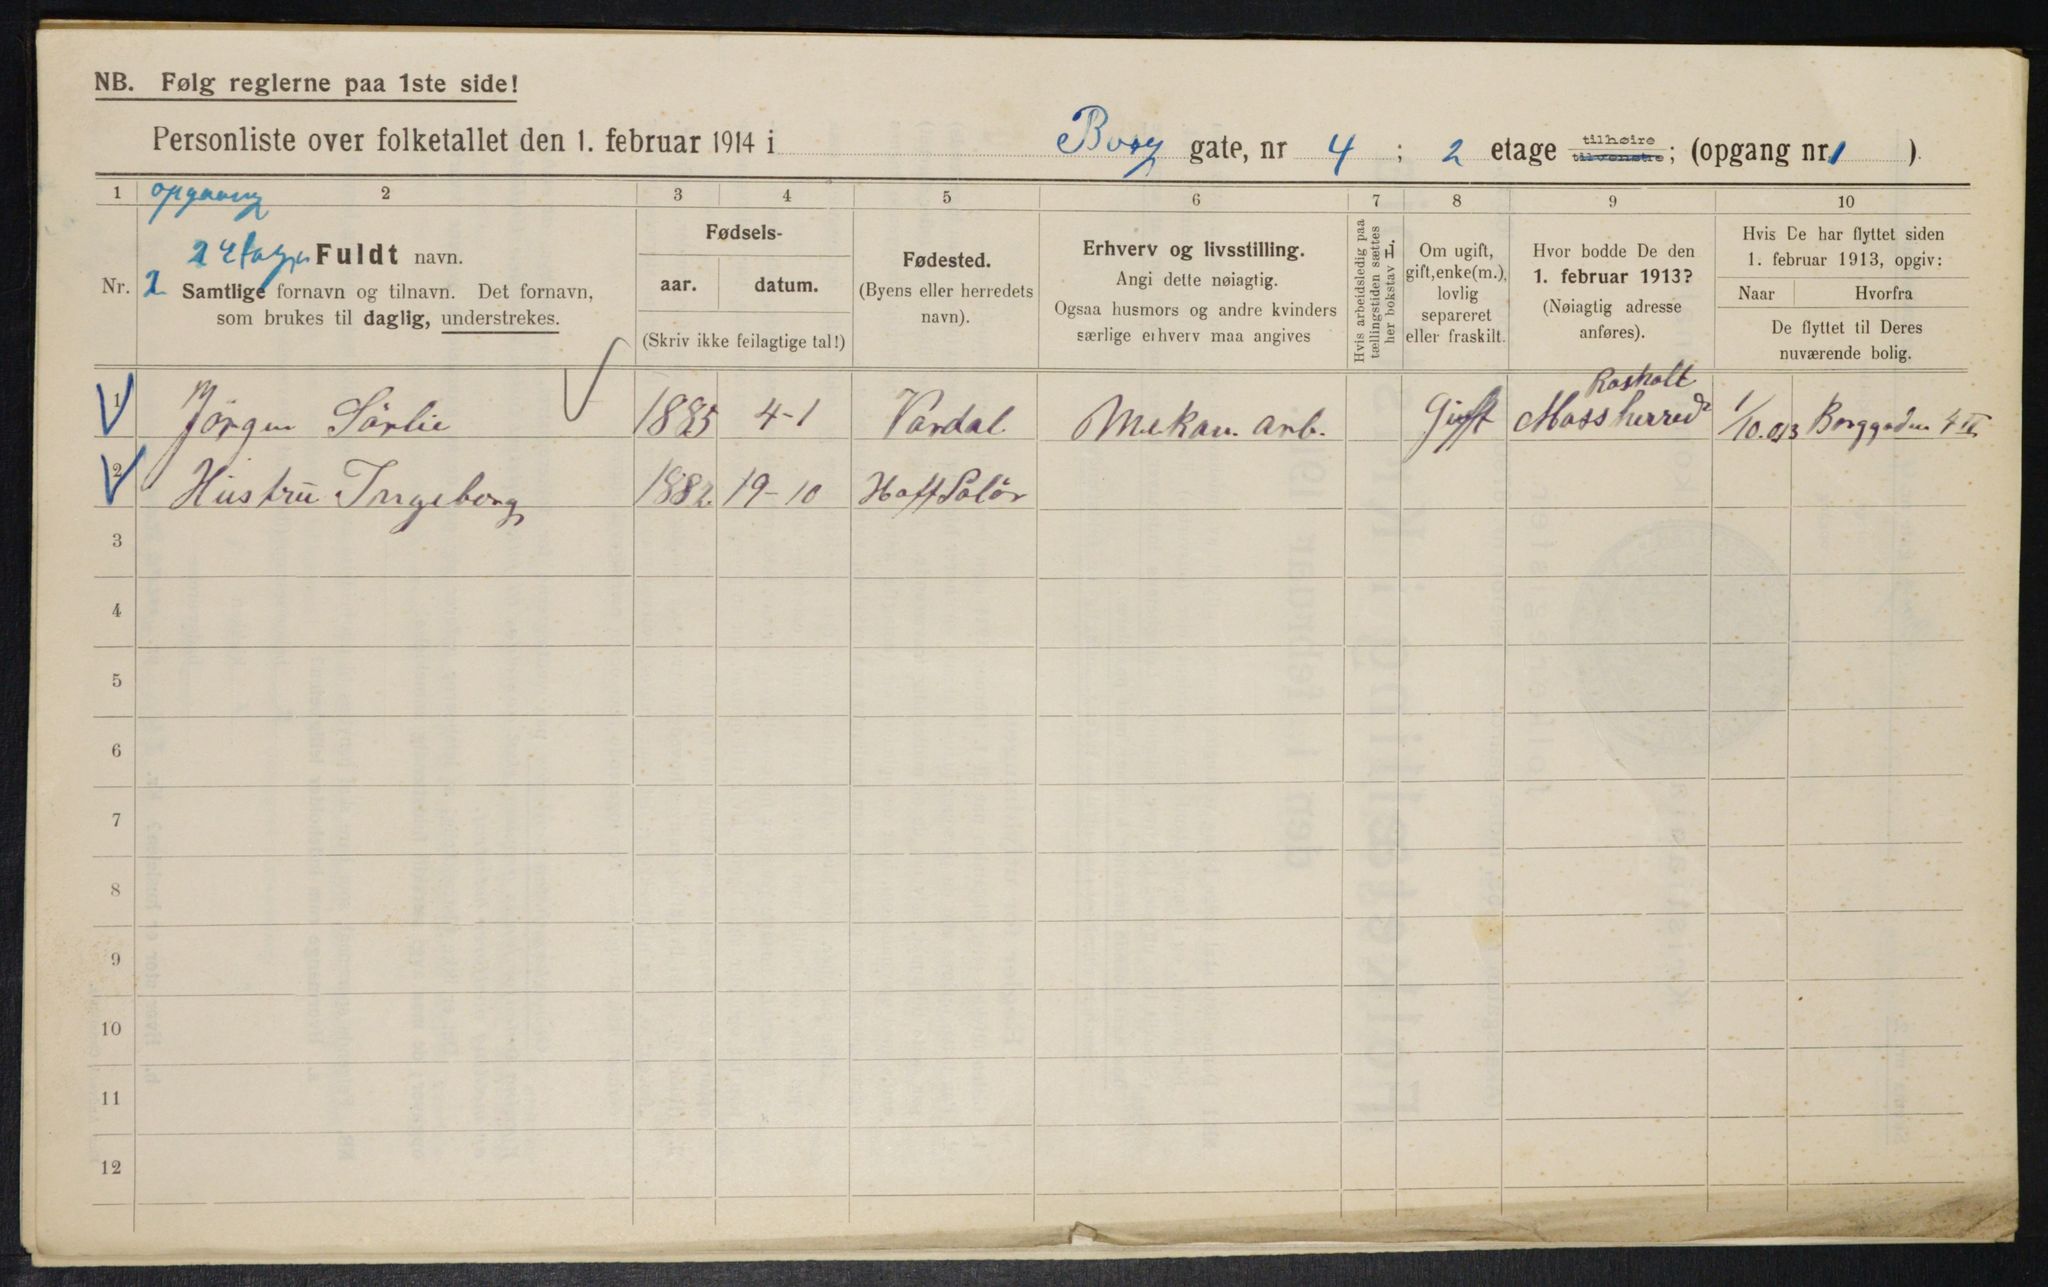 NB. Følg reglerne paa 1ste side!
Personliste over folketallet den 1. februar 1914 i Borg gate, nr 4 ; 2 etage tilhøire tilvenstre; (opgang nr. 1 ).
1 2 3 4 5 6 7 8 9 10
opgang
2 Etage
1
Nr.
Fuldt navn.
Samtlige fornavn og tilnavn. Det fornavn,
som brukes til daglig, understrekes.
Fødsels-
aar. datum.
(Skriv ikke feilagtige tal!)
Fødested.
(Byens eller herredets
navn).
Erhverv og livsstilling.
Angi dette nøiagtig.
Ogsaa husmors og andre kvinders
særlige erhverv maa angives
Hvis arbeidsledig paa
tællingstiden sættes
her bokstav L.
Om ugift,
gift, enke(m.),
lovlig
separeret
eller fraskilt.
Hvor bodde De den
1. februar 1913?
(Nøiagtig adresse
anføres).
Hvis De har flyttet siden
1. februar 1913, opgiv:
Naar Hvorfra
De flyttet til Deres
nuværende bolig.
Rosholt
1 Jørgen Sørlie 1885 4-1 Vardal Mekan. arb. Gift Moss herred 1/10.913 Borggaden 4 II
2 Hustru Ingeborg 1882. 19-10 Hoff Solør
3
4
5
6
7
8
9
10
11
12